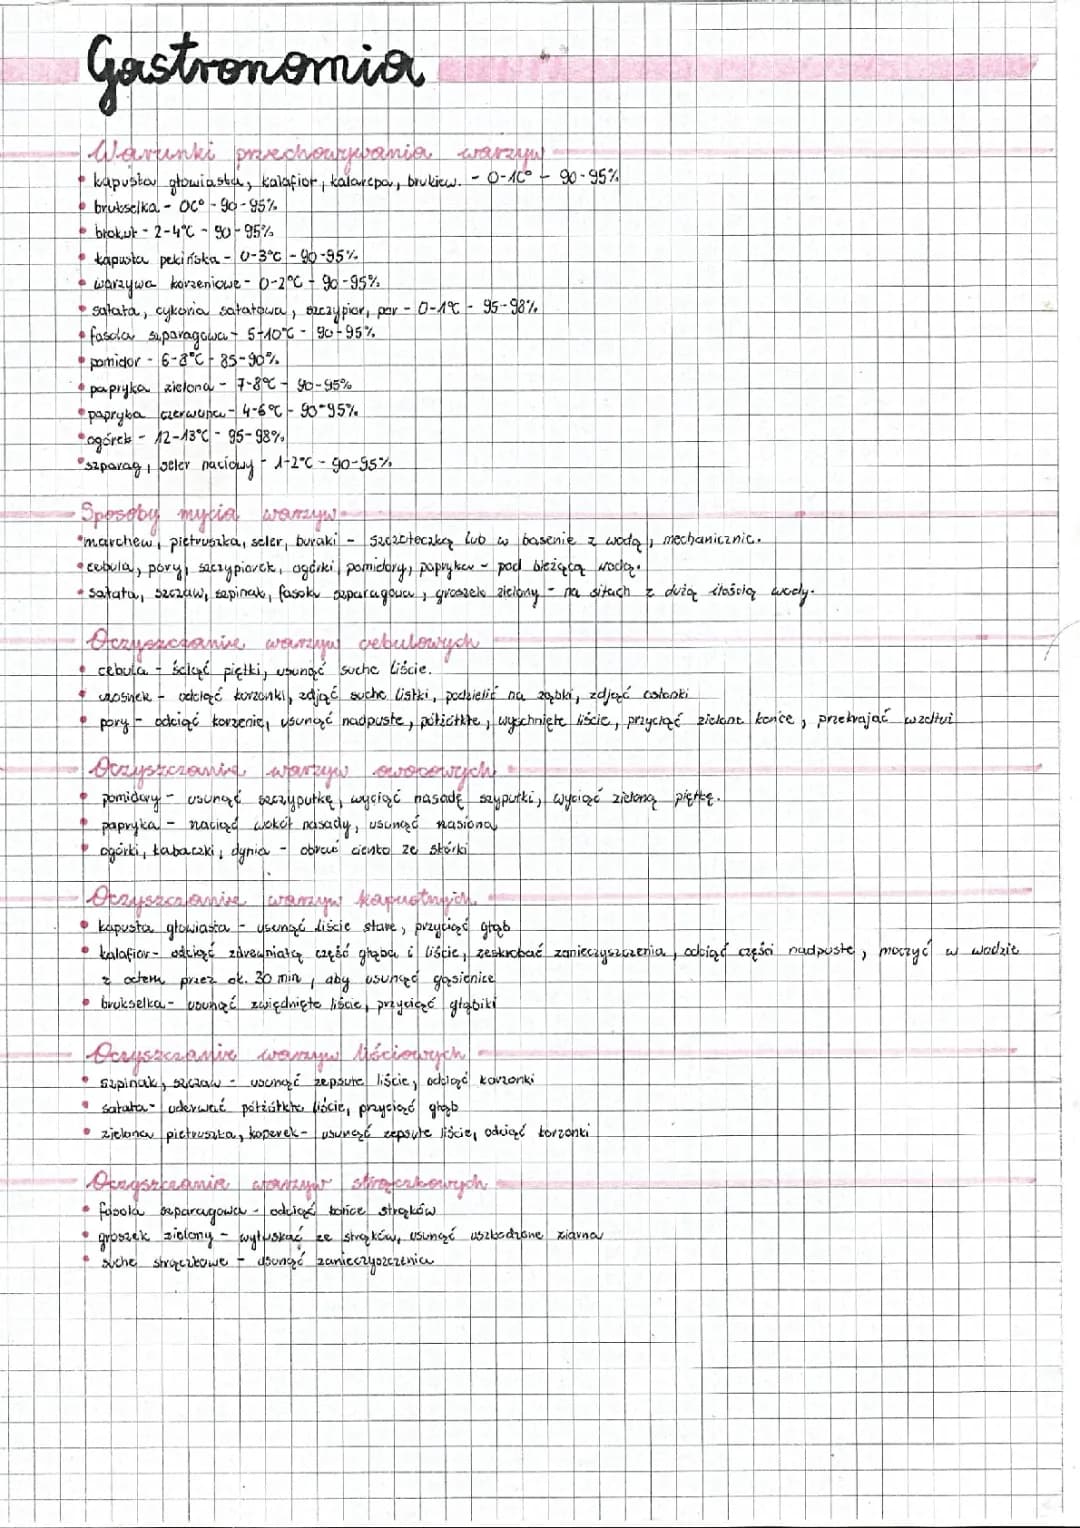 Gastronomia
Warunki przechowywania warzyw
• kapusta głowiasta, kalafior, kalarepa, brukiew. - 0-1C° - 90-95%
• brukselka - 0C° - 90-95%
• brokuł - 2-4°C - 90-95%
• kapusta pekińska - 0-3°C - 90-95%
• warzywa korzeniowe - 0-2°C - 90-95%
• sałata, cykoria sałatowa, szczypior, por - 0-1°C - 95-98%
• fasola szparagowa - 5-10°C - 90-95%
• pomidor - 6-8°C - 85-90%
• papryka zielona - 7-8°C - 90-95%
• papryka czerwona - 4-6°C - 90-95%
• ogórek - 12-13°C - 95-98%
• szparag, seler naciowy - 1-2°C - 90-95%
Sposoby mycia warzyw
• marchew, pietruszka, seler, buraki - szczoteczką lub w basenie z wodą, mechanicznie.
• cebula, pory, szczypiorek, ogórki, pomidory, papryka - pod bieżącą wodą.
• sałata, szczaw, szpinak, fasola szparagowa, groszek zielony - na sitach z dużą ilością wody.
Oczyszczanie warzyw cebulowych
• cebula - ściąć piętki, usunąć suche liście.
• czosnek - odciąć korzonki, zdjąć suche listki, podzielić na ząbki, zdjąć osłonki
• pory - odciąć korzenie, usunąć nadpsute, pożółkłe, wyschnięte liście, przyciąć zielone końce, przekrajać wzdłuż
Oczyszczanie warzyw owocowych
• pomidory - usunąć szczypułkę, wyciąć nasadę szypułki, wyciąć zieloną piętkę.
• papryka - naciąć wokół nasady, usunąć nasiona
• ogórki, kabaczki, dynia - obrać cienko ze skórki
Oczyszczanie warzyw kapustnych
• kapusta głowiasta - usunąć liście stare, przyciąć głąb
• kalafior - odciąć zdrewniałą część głąba i liście, zeskrobać zanieczyszczenia, odciąć części nadpsute, moczyć w wodzie
z octem przez ok. 30 min, aby usunąć gąsienice
• brukselka - usunąć zwiędnięte liście, przyciąć głąbiki
Oczyszczanie warzyw liściowych
• szpinak, szczaw - usunąć zepsute liście, odciąć korzonki
• sałata - oderwać pożółkłe liście, przyciąć głąb
• zielona pietruszka, koperek - usunąć zepsute liście, odciąć korzonki
Oczyszczanie warzyw strączkowych
• fasola szparagowa - odciąć końce strąków
• groszek zielony - wyłuskać ze strąków, usunąć uszkodzone ziarna
• suche strączkowe - usunąć zanieczyszczenia